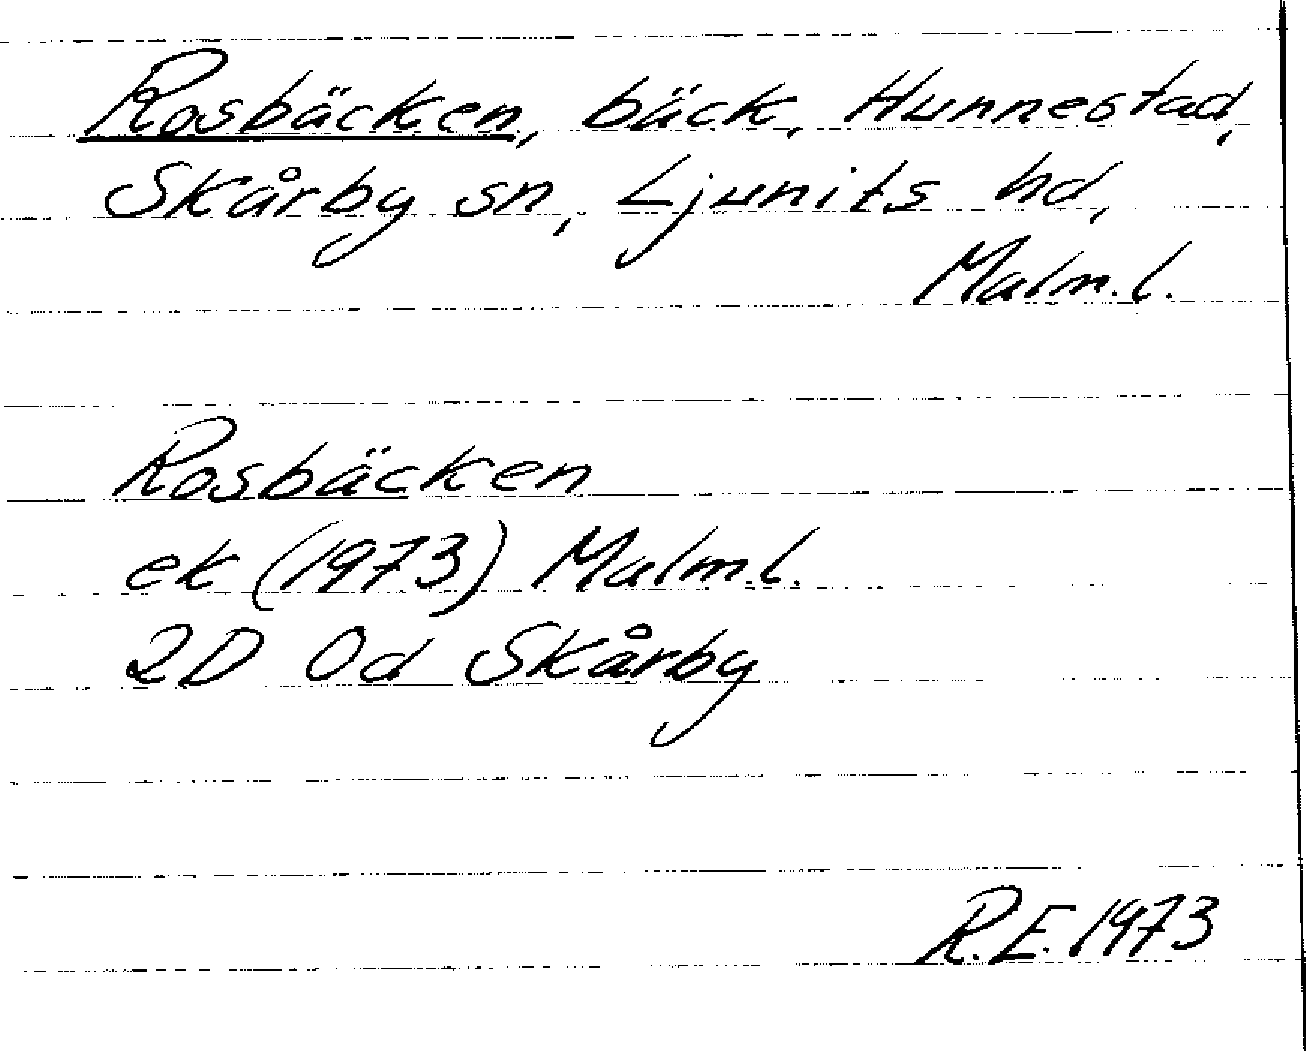 Rosbäcken, bäck, Hunnestad,
Skårby sn, Ljunits hd,
Malm.l.
Rosbäcken
ek (1973) Malm.l.
2D 0d Skårby
R.E. 1973